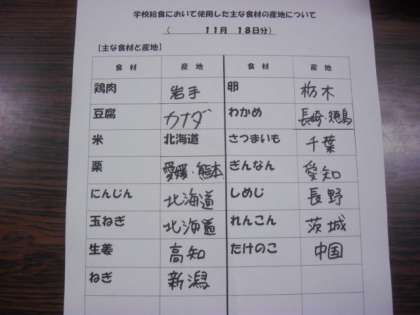 学校給食において使用した主な食材の産地について
( 11月 18日分)
[主な食材と産地]
食材 産地 食材 産地
鶏肉 岩手 卵 栃木
豆腐 カナダ わかめ 長崎・徳島
米 北海道 さつまいも 千葉
栗 愛媛・熊本 ぎんなん 愛知
にんじん 北海道 しめじ 長野
玉ねぎ 北海道 れんこん 茨城
生姜 高知 たけのこ 中国
ねぎ 新潟